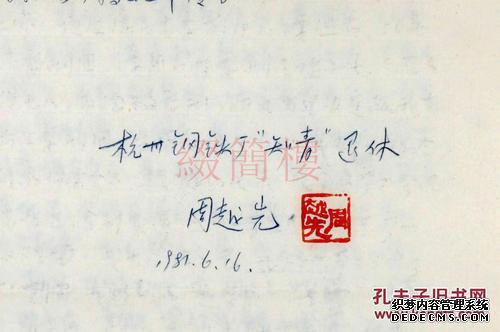 杭州钢铁厂"知青"退休
缀簡樓
周越先
周越先
1981.6.16.
孔夫子旧书网
织梦内容管理系统
DEDECMS.COM